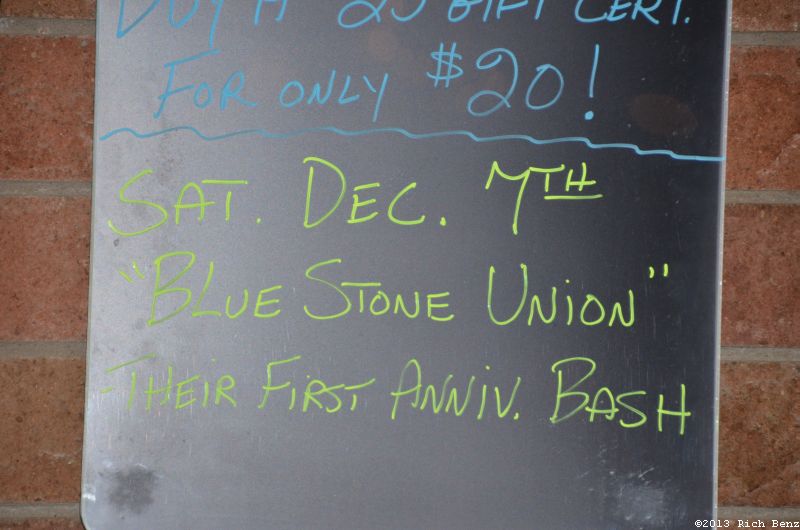 BUY A 25 GIFT CERT.
FOR ONLY $20!
SAT. DEC. 7TH
"BLUE STONE UNION"
-THEIR FIRST ANNIV. BASH
©2013 Rich Benz